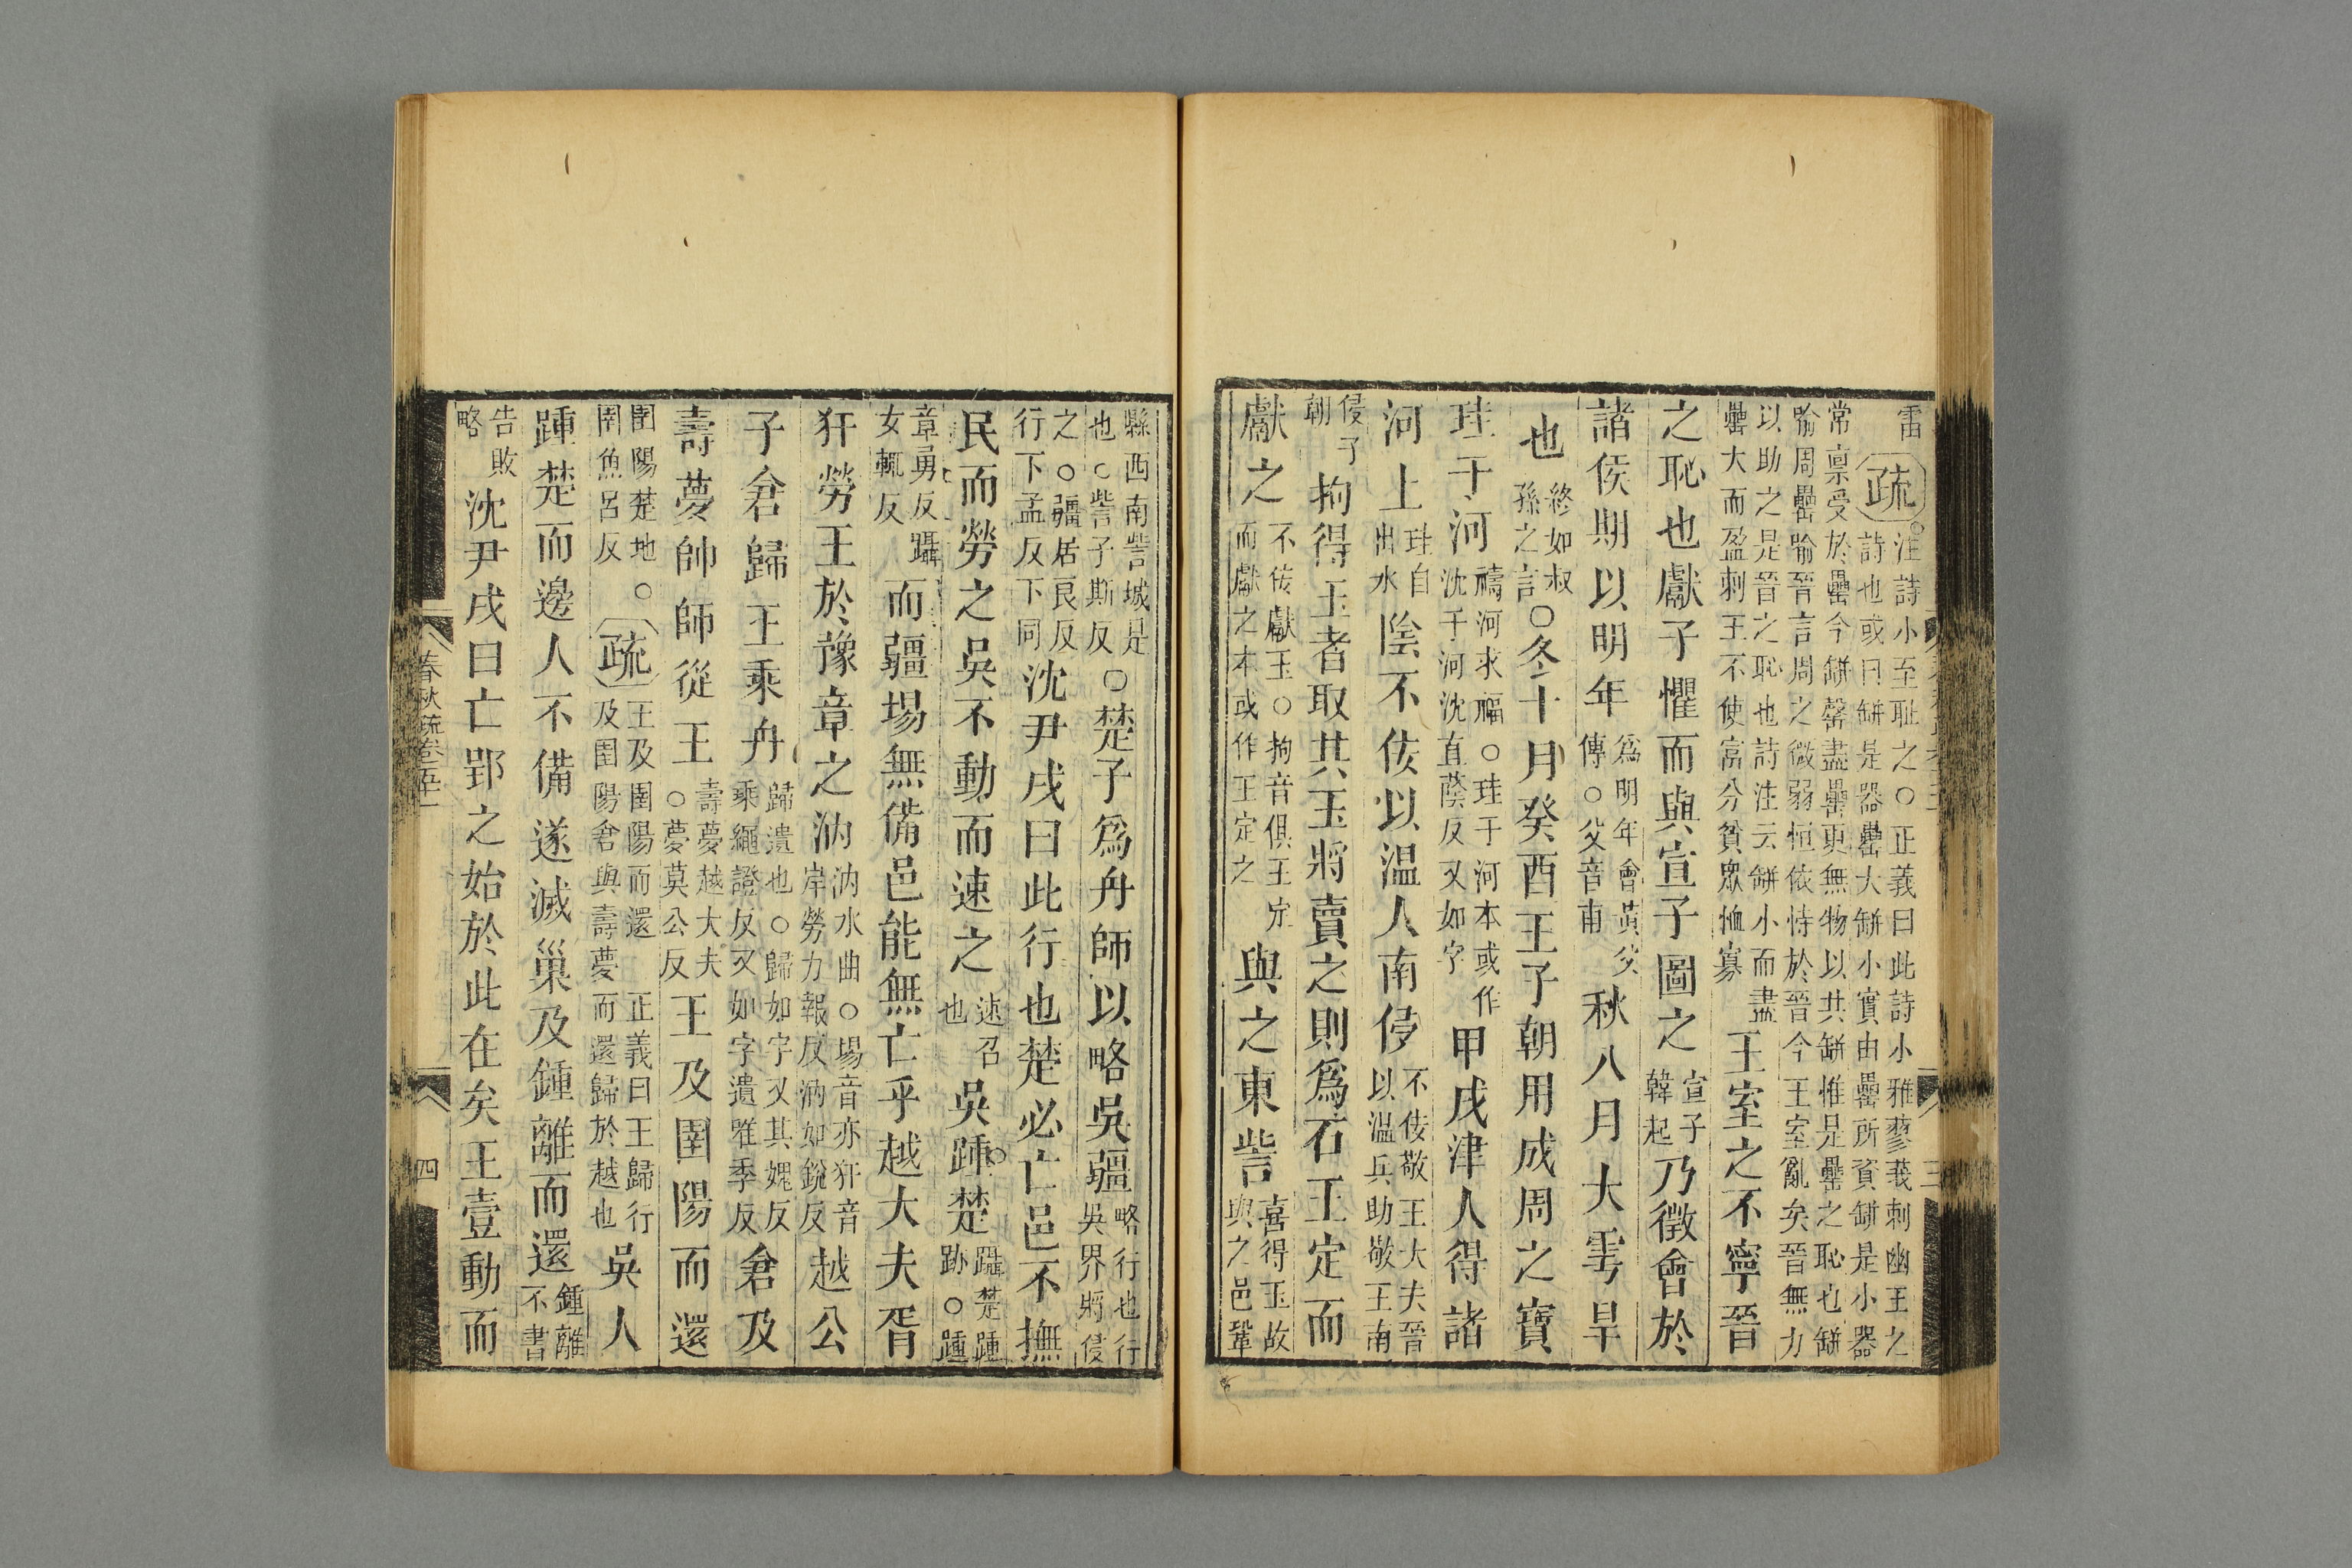 雷疏注詩小至耻之○正義曰此詩小雅蓼莪刺幽王之詩也或曰缾是器罍大缾小實由罍所資缾是小器
常稟受於罍今缾罄盡罍更無物以共缾惟是罍之恥也缾喻周罍喻晉言周之微弱恒依恃於晉今王室亂矣晉無力
以助之是晉之恥也詩注云缾小而盡罍大而盈刺王不使富分貧衆恤寡王室之不寧晉
之恥也獻子懼而與宣子圖之宣子韓起乃徵會於
諸侯期以明年爲明年會黃父傳○父音甫秋八月大雩旱
也終如叔孫之言○冬十月癸酉王子朝用成周之寶
珪于河禱河求福○珪于河本或作沈于河沈直蔭反又如字甲戌津人得諸
河上珪自出水陰不佞以温人南侵不佞敬王大夫晉以温兵助敬王南
侵子朝拘得玉者取其玉將賣之則爲石王定而
獻之不佞獻玉○拘音俱王定而獻之本或作王定之與之東訾喜得玉故與之邑鞏
縣西南訾城是也○訾子斯反○楚子爲舟師以略吳疆略行也行吳界將侵
之○疆居良反行下孟反下同沈尹戌曰此行也楚必亡邑不撫
民而勞之吳不動而速之速召也吳踵楚躡楚踵跡○踵
章勇反躡女輒反而疆場無備邑能無亡乎越大夫胥
犴勞王於豫章之汭汭水曲○場音亦犴音岸勞力報反汭如銳反越公
子倉歸王乘舟歸遺也○歸如字又其媿反乘繩證反又如字遺唯季反倉及
壽夢帥師從王壽夢越大夫○夢莫公反王及圉陽而還
圉陽楚地○圉魚呂反疏王及圉陽而還正義曰王歸行及圉陽倉與壽夢而還歸於越也吳人
踵楚而邊人不備遂滅巢及鍾離而還鍾離不書
告敗略沈尹戌曰亡郢之始於此在矣王壹動而
春秋疏卷五十一
四